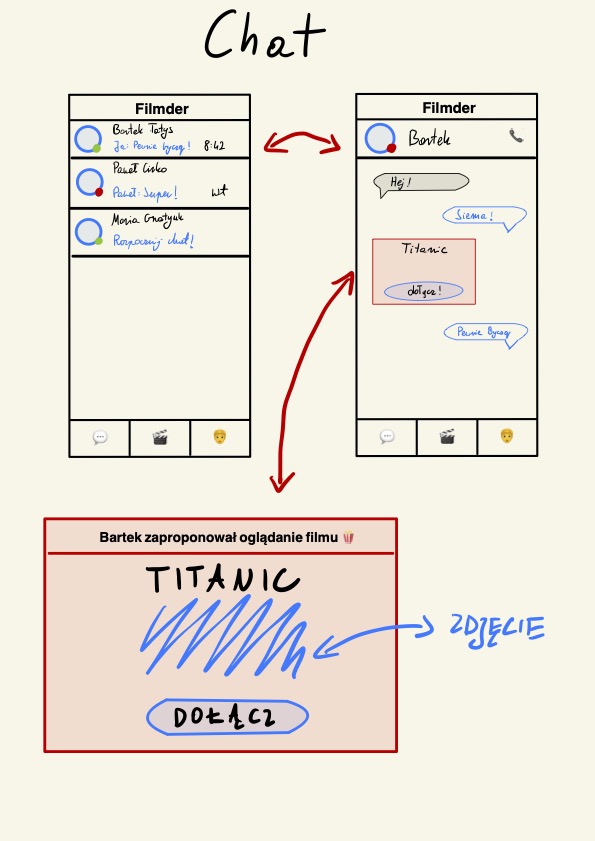 Chat
Filmder
Bartek Tatys
Ja: Pewnie byczq! 8:42
Paweł Cisko
Paweł: Super! wt
Maria Gnatyuk
Rozpocznij chat!
Filmder
Bartek
Hej!
Siema!
Titanic
dołącz!
Pewnie Byczq
Bartek zaproponował oglądanie filmu
TITANIC
ZDJĘCIE
DOŁĄCZ